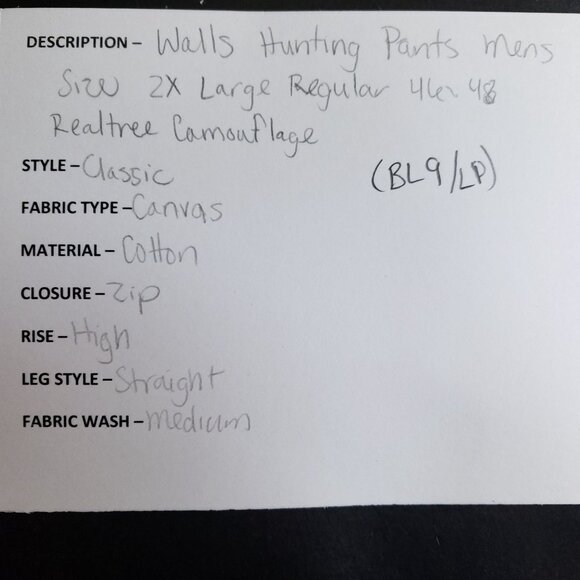 DESCRIPTION – Walls Hunting Pants Mens
Size 2X Large Regular 46-48
Realtree Camouflage
STYLE – Classic
(BL9/LP)
FABRIC TYPE – Canvas
MATERIAL – Cotton
CLOSURE – Zip
RISE – High
LEG STYLE – Straight
FABRIC WASH – Medium